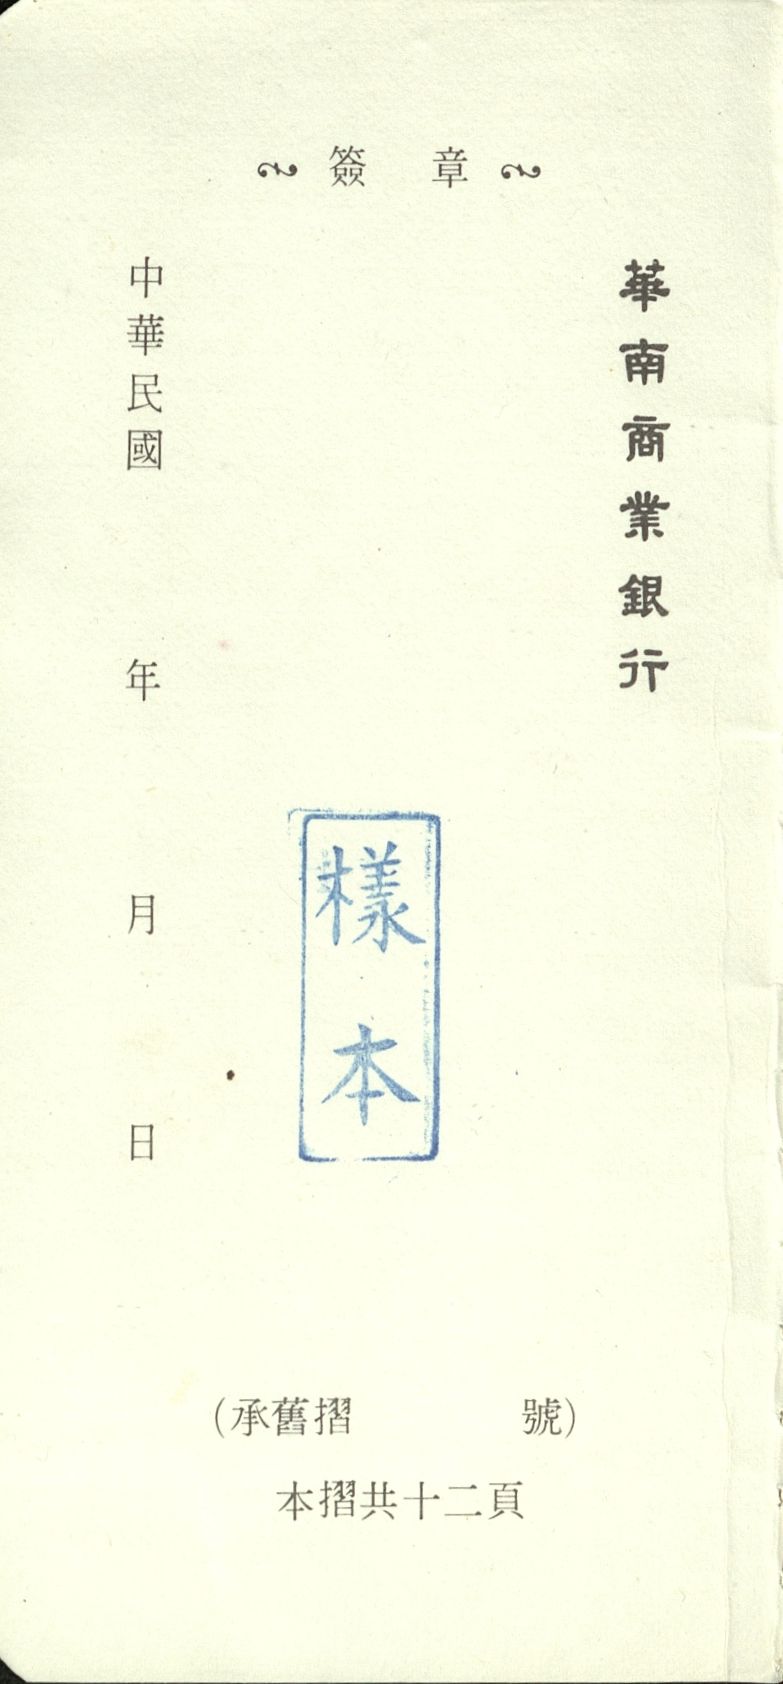 簽 章
華南商業銀行
樣本
中華民國 年 月 日
(承舊摺 號)
本摺共十二頁